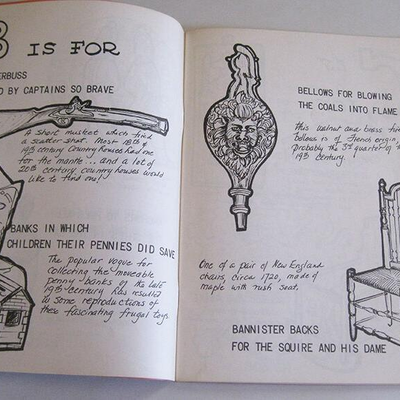 B IS FOR
ERBUSS
D BY CAPTAINS SO BRAVE
A short musket which fired
a scatter shot. Most 18th &
19th century country houses had one
for the mantle... and a lot of
20th century country houses would
like to find one!
BANKS IN WHICH
CHILDREN THEIR PENNIES DID SAVE
The popular vogue for
collecting the moveable
penny banks of the late
19th century has resulted
in some reproductions of
these fascinating frugal toys.
BELLOWS FOR BLOWING
THE COALS INTO FLAME
This walnut and brass
bellows is of French origin
probably the 3rd quarter of
19th century!
One of a pair of New England
chairs, circa 1720, made of
maple with rush seat.
BANNISTER BACKS
FOR THE SQUIRE AND HIS DAME